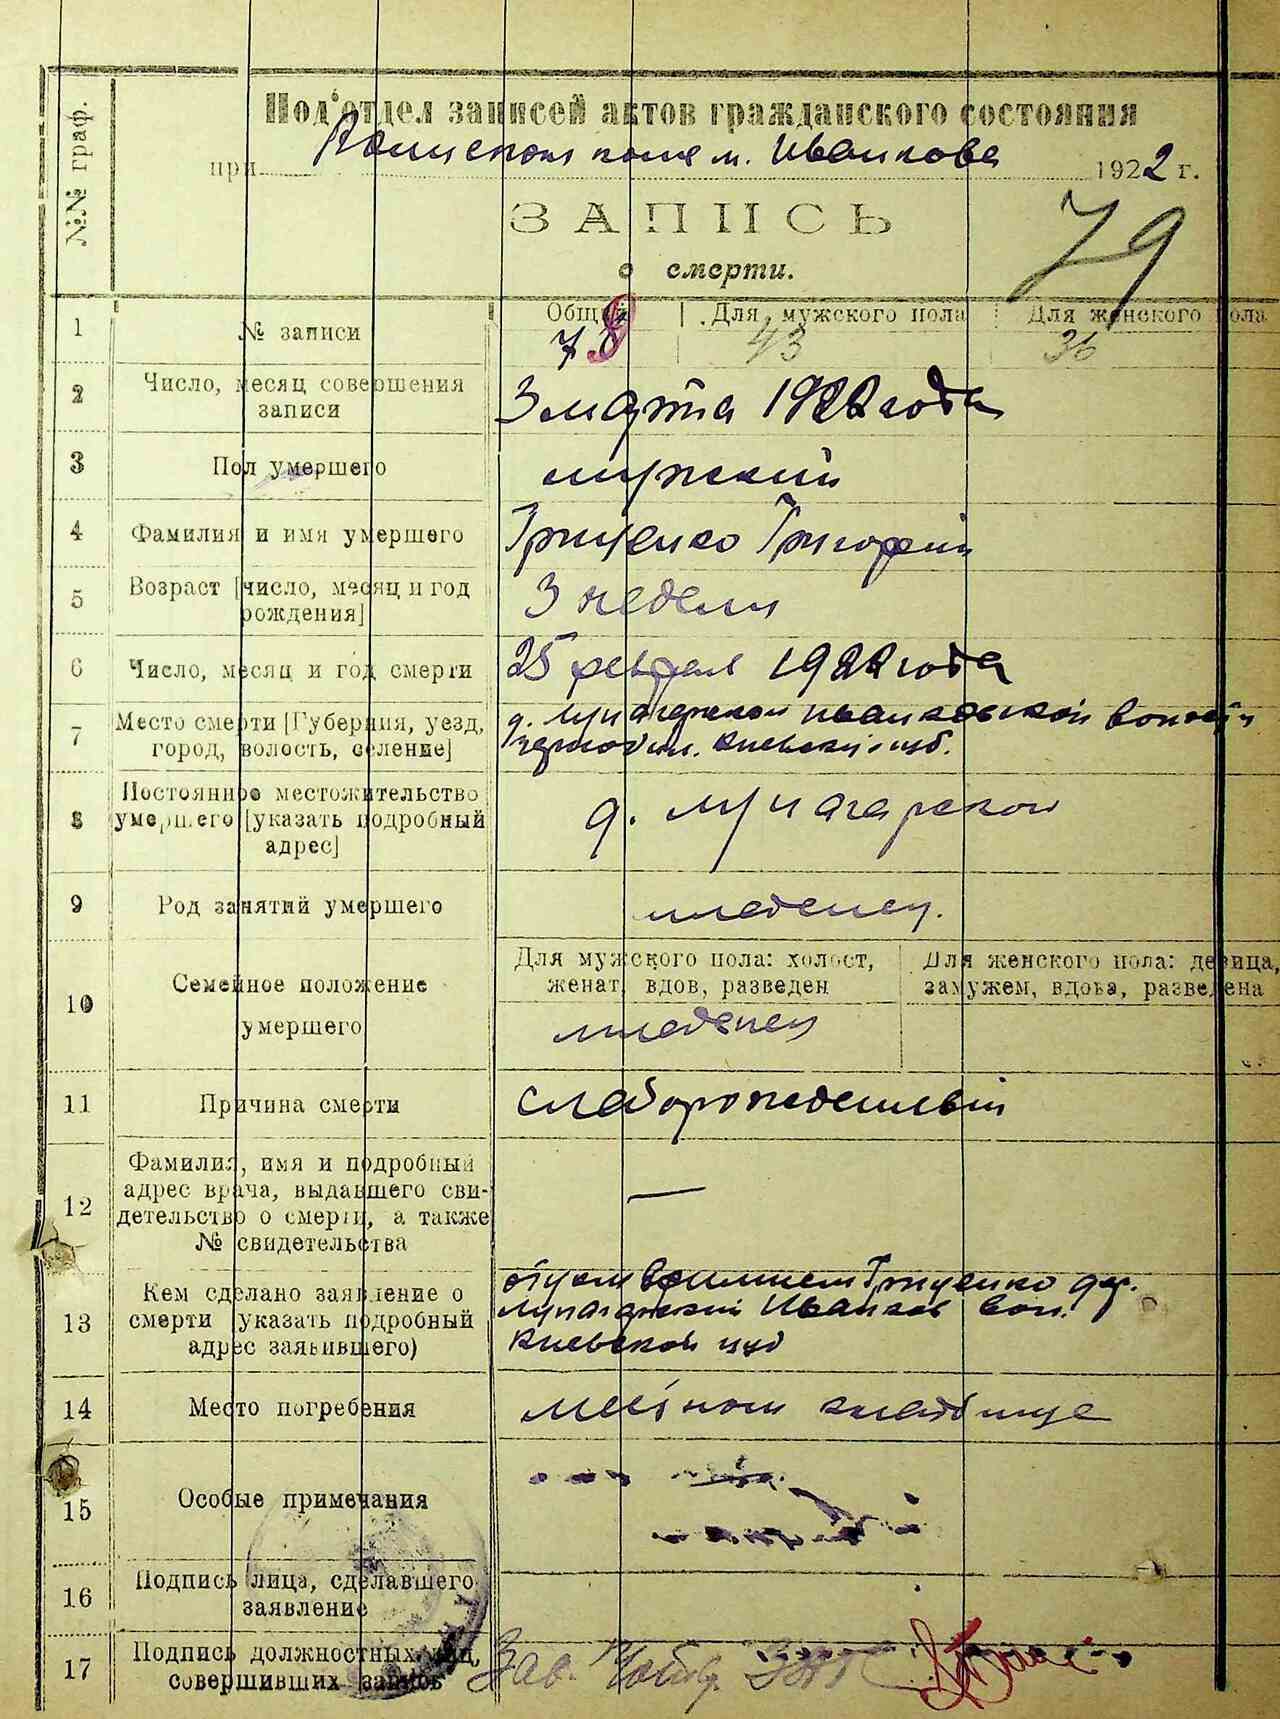 №№ граф.
Под'отдел записей актов гражданского состояния
при м. Иванкова 1922 г.
79
ЗАПИСЬ
о смерти.
1 № записи Общий Для мужского пола Для женского пола
79 43 36
2 Число, месяц совершения
записи
3 марта 1922 года
3 Пол умершего мужский
4 Фамилия и имя умершего Грищенко Григорий
5 Возраст [число, месяц и год
рождения]
3 недели
6 Число, месяц и год смерти 25 феврал 1922 года
7 Место смерти [Губерния, уезд,
город, волость, селение]
д. Иванковской волости
Киевской губ.
8 Постоянное местожительство
умершего [указать подробный
адрес]
д.
9 Род занятий умершего младенец.
10 Семейное положение
умершего
Для мужского пола: холост,
женат, вдов, разведен
Для женского пола: девица,
замужем, вдова, разведена
младенец
11 Причина смерти слаборожденный
12 Фамилия, имя и подробный
адрес врача, выдавшего сви-
детельство о смерти, а также
№ свидетельства
—
13 Кем сделано заявление о
смерти (указать подробный
адрес заявившего)
отцем Грищенко дер.
Иванков вол.
Киевской губ
14 Место погребения местном кладбище
15 Особые примечания
16 Подпись лица, сделавшего
заявление
17 Подпись должностных лиц,
совершивших запись
Зав. ЗАГС